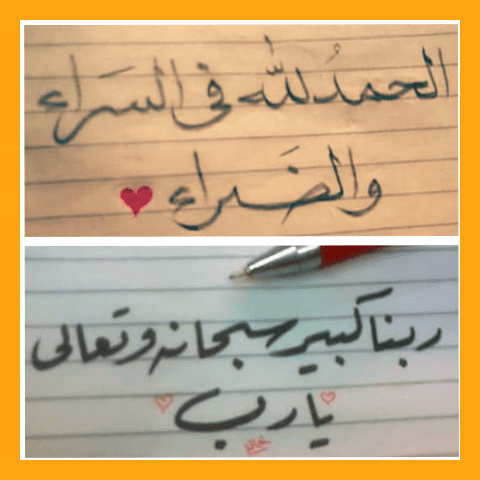 الحمدُ لله في السَراء
والضَراء
ربنا كبير سبحانه وتعالى
يا رب